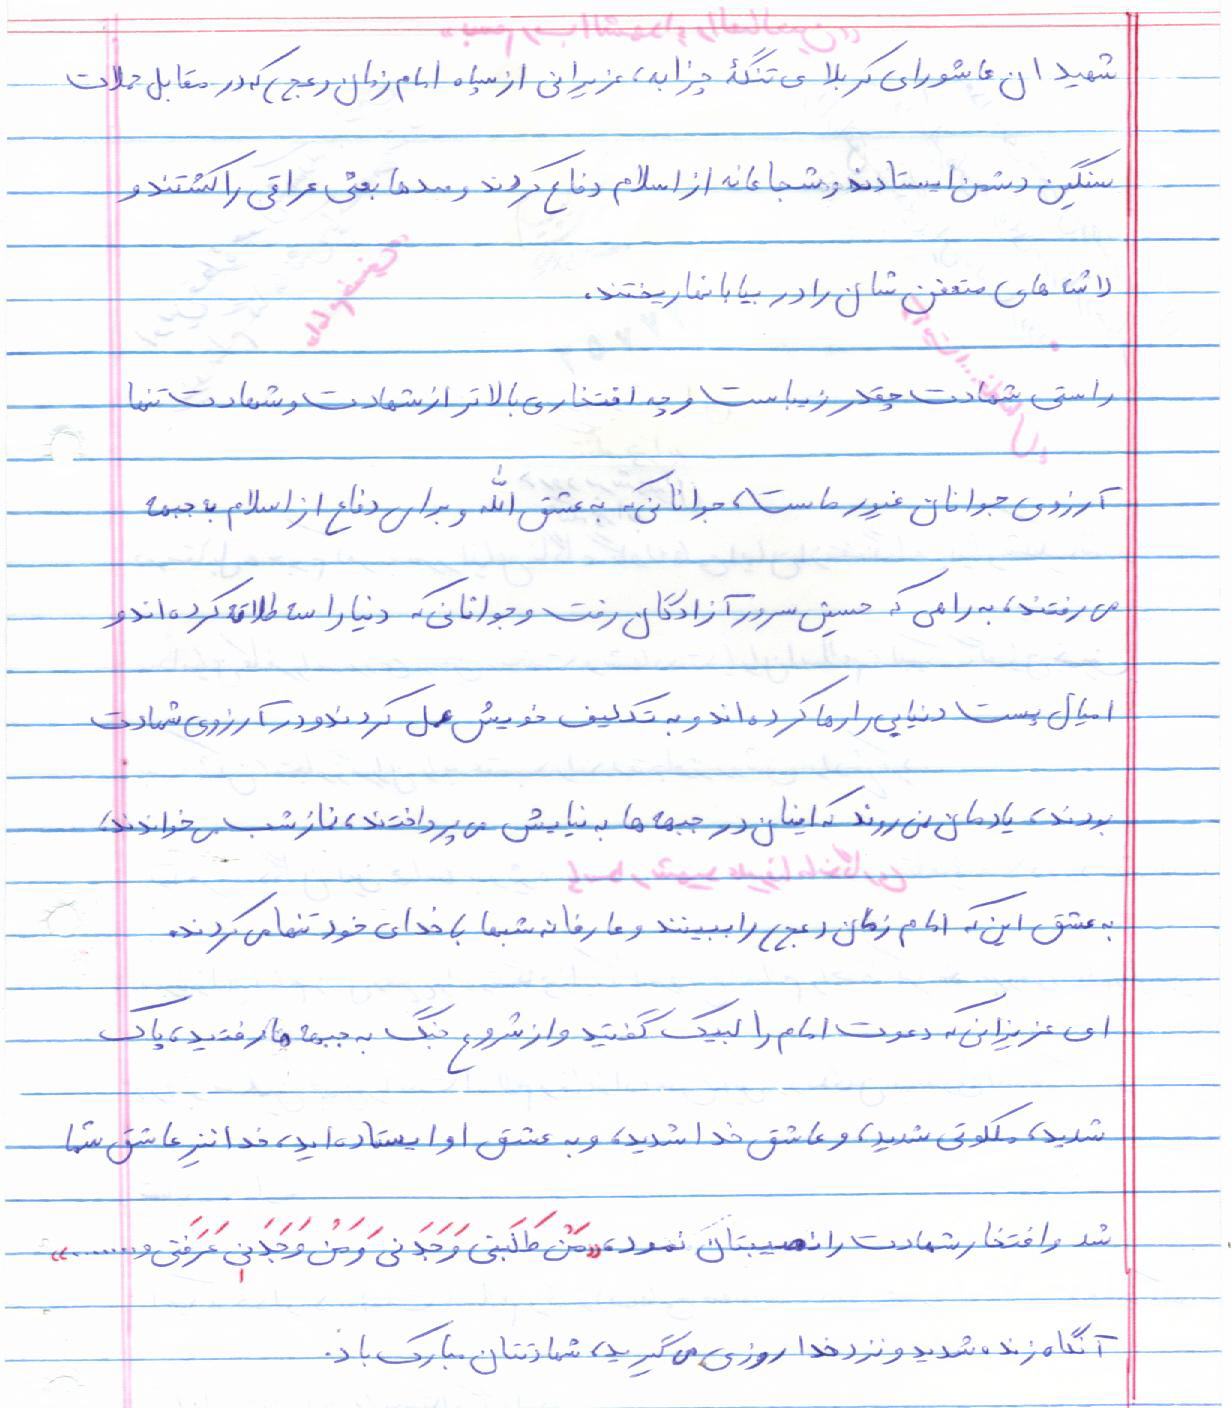 شهیدان عاشورای کربلای تنگهٔ چزابه، عزیزانی از سپاه امام زمان (عج) که در مقابل حملات
سنگین دشمن ایستادند و شجاعانه از اسلام دفاع کردند و صدها بعثی عراقی را کشتند و
لاشه های متعفن شان را در بیابانها ریختند.
راستی شهادت چقدر زیباست و چه افتخاری بالاتر از شهادت و شهادت تنها
آرزوی جوانان غیور ماست، جوانانی که به عشق الله و برای دفاع از اسلام به جبهه
می رفتند، به راهی که حسین سرور آزادگان رفت و جوانانی که دنیا را سه طلاقه کرده اند و
امیال پست دنیایی را رها کرده اند و به تکلیف خویش عمل کردند و در آرزوی شهادت
بودند، یادمان نمی روند که اینان در جبهه ها به نیایش می پرداختند، نماز شب می خواندند،
به عشق این که امام زمان (عج) را ببینند و عارفانه شبها با خدای خود تنها می کردند.
ای عزیزانی که دعوت امام را لبیک گفتید و از شروع جنگ به جبهه ها رفتید، پاک
شدید، ملکوتی شدید، و عاشق خدا شدید، و به عشق او ایستاده اید، خدا نیز عاشق شما
شد و افتخار شهادت را نصیبتان نمود، «مَنْ طَلَبَنی وَجَدَنی وَ مَنْ وَجَدَنی عَرَفَنی و ......»
آنگاه زنده شدید و نزد خدا روزی می گیرید، شهادتتان مبارک باد.